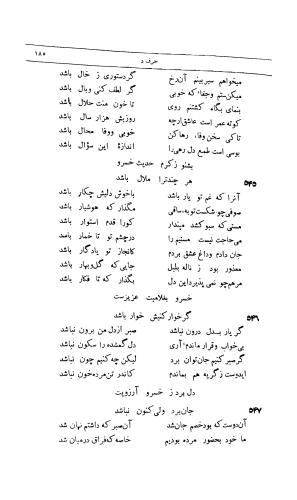 حرف د
۱۸۵
میخواهم سیر بینم آن رخ گر دستوری ز خال باشد
میکن ستم و جفا که خوبی گر لطف کنی وبال باشد
بنمای بگاه کشتنم روی تا خون منت حلال باشد
کوته عمر است عاشق ارچه روزیش هزار سال باشد
تا کی سخن وفا، رها کن خوبی و وفا محال باشد
بوسی است طمع دل رهی را اندازهٔ این سؤال باشد
بشنو ز کرم حدیث خسرو
هر چند ترا ملال باشد
۵۴۵
آنرا که غم تو یار باشد با خوش دلیش چکار باشد
صوفی چو شکست توبه، ساقی مگذار که هوشیار باشد
مستی که سبو کشد میندار کورا قدم استوار باشد
می حاجت نیست مستیم را در چشم تو تا خمار باشد
جان دادم و داغ عشق بردم کانجاز تو یادگار باشد
معذور بود ز ناله بلبل جایی که گل و بهار باشد
مرهم چو نمی پذیرد این دل بگذار که تا فکار باشد
خسرو بغلامیت عزیزست
گر خوار کنیش خوار باشد
۵۴۶
گر یار بسدل درون نباشد صبر از دل من برون نباشد
بی خواب و قرار ماندم آری دل گمشده را سکون نباشد
گر صبر کنیم جان توان برد لیکن چه کنیم چون نباشد
ایدوست ز گریه هم بماندم کاندر تن مرده خون نباشد
دل برد ز خسرو آرزویت
جان برد ولی کنون نباشد
۵۴۷
آن دوست که بود خصم جان شد آن صبر که داشتم نهان شد
ما خود بحضور مرده بودیم خاصه که فراق درمیان شد